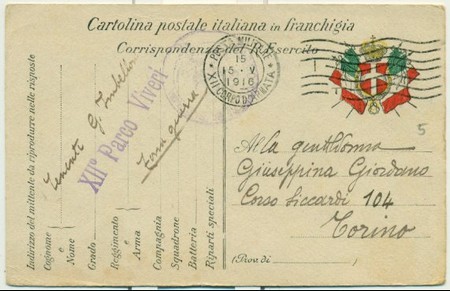 Cartolina postale italiana in franchigia
Corrispondenza del R. Esercito
POSTA MILITARE
15
5 - V
1916
XII CORPO D'ARMATA
5
Alla gentilissima
Giuseppina Giordano
Corso Siccardi 104
Torino
(Prov. di
Indirizzo del mittente da riprodurre nelle risposte
Cognome e Nome
Grado
Reggimento e Arma
Compagnia
Squadrone
Batteria
Riparti speciali
Tenente G.
XIIº Parco Viveri
Zona guerra